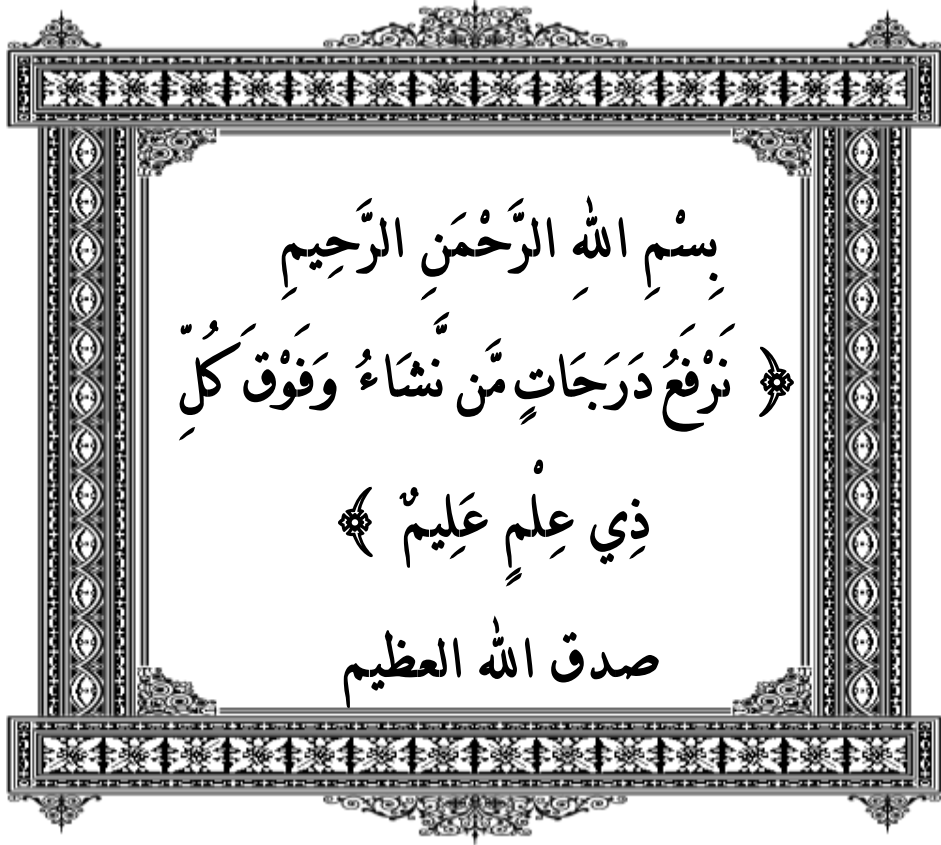 بِسْمِ اللهِ الرَّحْمَنِ الرَّحِيمِ
﴿ نَرْفَعُ دَرَجَاتٍ مَّن نَّشَاءُ وَفَوْقَ كُلِّ
ذِي عِلْمٍ عَلِيمٌ ﴾
صدق الله العظيم